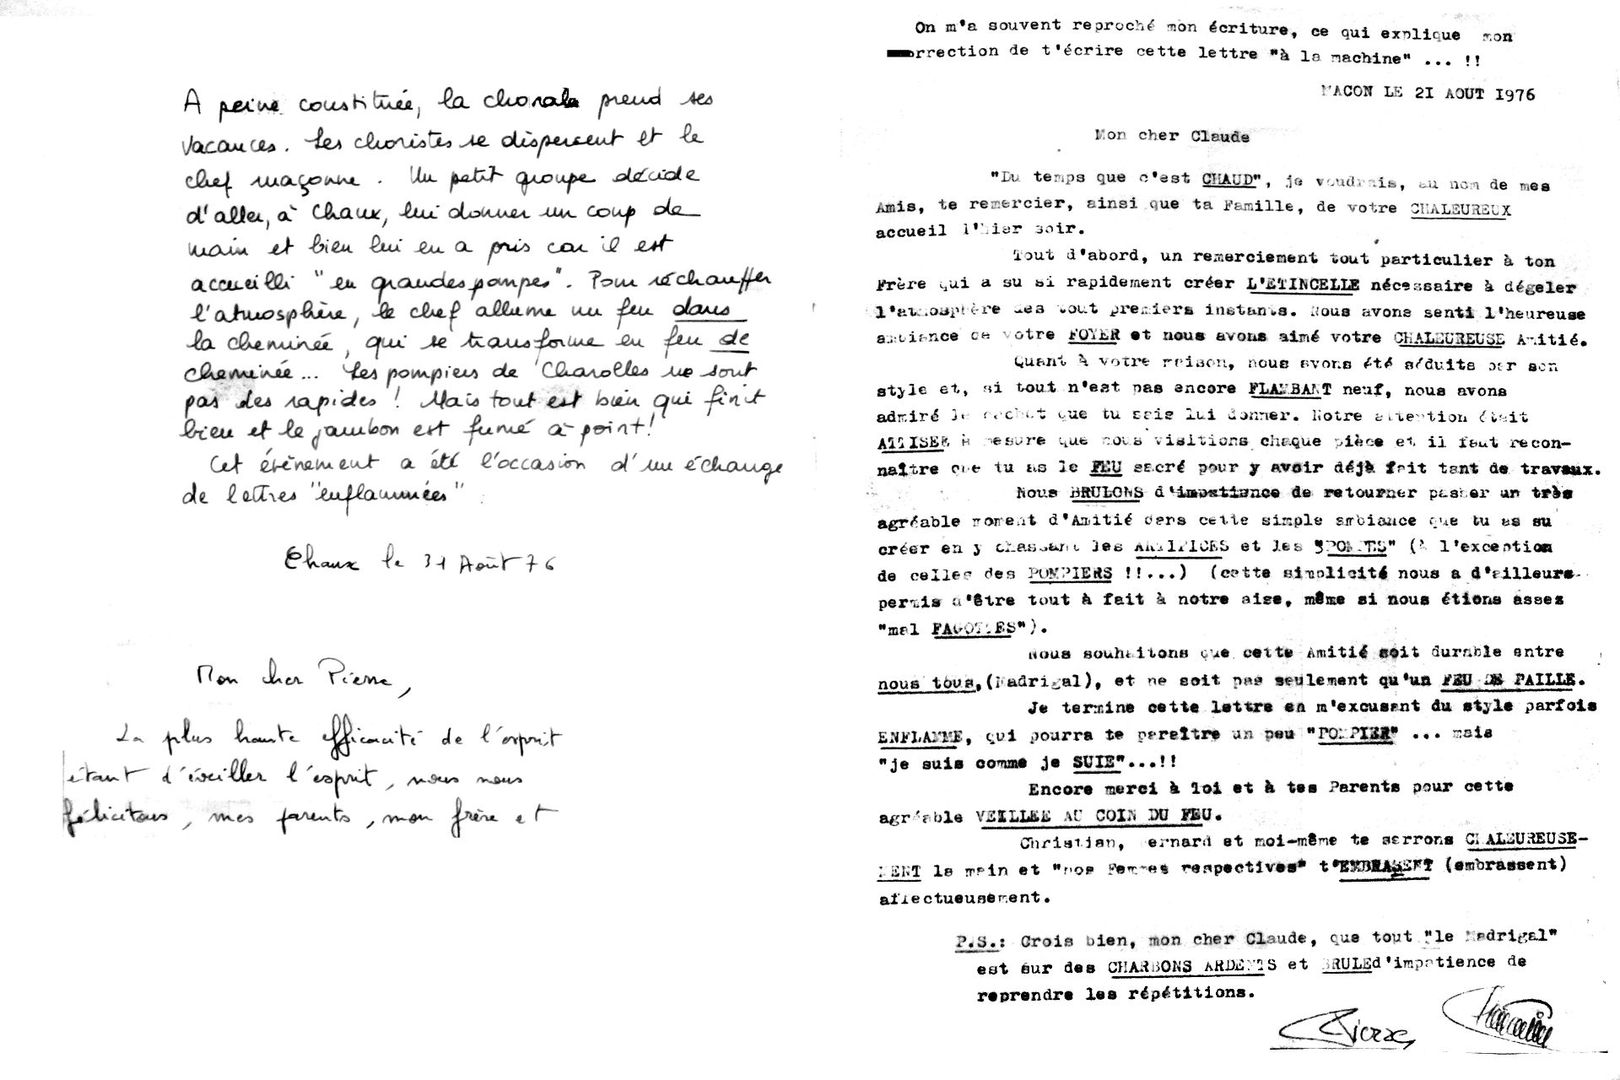 A peine constituée, la chorale prend ses
vacances. Les choristes se dispersent et le
chef maçonne. Un petit groupe décide
d'aller, à Chaux, lui donner un coup de
main et bien lui en a pris car il est
accueilli "en grandes pompes". Pour réchauffer
l'atmosphère, le chef allume un feu dans
la cheminée, qui se transforme en feu de
cheminée... Les pompiers de Charolles ne sont
pas des rapides ! Mais tout est bien qui finit
bien et le jambon est fumé à point!
Cet évènement a été l'occasion d'un échange
de lettres "enflammées"
Chaux le 31 Août 76
Mon cher Pierre,
La plus haute efficacité de l'esprit
étant d'éveiller l'esprit, nous nous
félicitons, mes parents, mon frère et
On m'a souvent reproché mon écriture, ce qui explique mon
orrection de t'écrire cette lettre "à la machine" ... !!
MACON LE 21 AOUT 1976
Mon cher Claude
"Du temps que c'est CHAUD", je voudrais, au nom de mes
Amis, te remercier, ainsi que ta Famille, de votre CHALEUREUX
accueil d'hier soir.
Tout d'abord, un remerciement tout particulier à ton
Frère qui a su si rapidement créer L'ETINCELLE nécessaire à dégeler
l'atmosphère des tout premiers instants. Nous avons senti l'heureuse
ambiance de votre FOYER et nous avons aimé votre CHALEUREUSE Amitié.
Quant à votre maison, nous avons été séduits par son
style et, si tout n'est pas encore FLAMBANT neuf, nous avons
admiré le cachet que tu sais lui donner. Notre attention était
ATTISEE à mesure que nous visitions chaque pièce et il faut recon-
naître que tu as le FEU sacré pour y avoir déjà fait tant de travaux.
Nous BRULONS d'impatience de retourner passer un très
agréable moment d'Amitié dans cette simple ambiance que tu as su
créer en y chassant les ARTIFICES et les "POMPES" (à l'exception
de celles des POMPIERS !!...) (cette simplicité nous a d'ailleurs
permis d'être tout à fait à notre aise, même si nous étions assez
"mal FAGOTTES").
Nous souhaitons que cette Amitié soit durable entre
nous tous,(Madrigal), et ne soit pas seulement qu'un FEU DE PAILLE.
Je termine cette lettre en m'excusant du style parfois
ENFLAMME, qui pourra te paraître un peu "POMPIER" ... mais
"je suis comme je SUIE"...!!
Encore merci à toi et à tes Parents pour cette
agréable VEILLEE AU COIN DU FEU.
Christian, Bernard et moi-même te serrons CHALEUREUSE-
MENT la main et "nos Femmes respectives" t'EMBRASENT (embrassent)
affectueusement.
P.S.: Crois bien, mon cher Claude, que tout "le Madrigal"
est sur des CHARBONS ARDENTS et BRULE d'impatience de
reprendre les répétitions.
Pierre